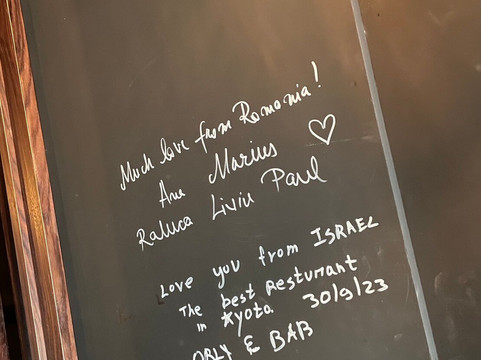 Much love from Romania!
Ana Marius ♡
Raluca Liviu Paul
Love you from ISRAEL
The best Resturant
in Kyoto 30/9/23
ORLY & BAB